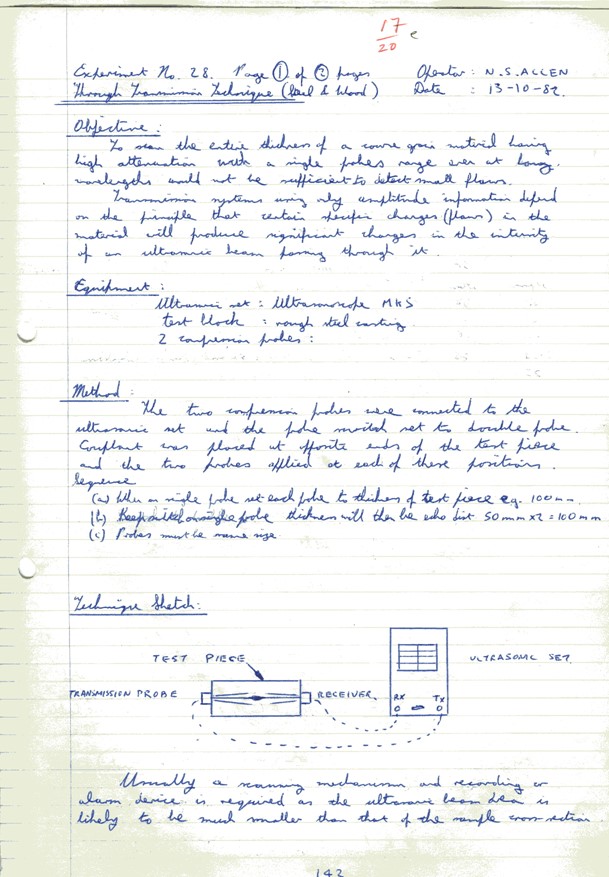 17
20
Experiment No. 28. Page 1 of 2 pages Operator : N.S.ALLEN
Through Transmission Technique ( & ) Date : 13-10-82.
Objective :
To scan the entire thickness of a coarse grain material having
high attenuation with a single probes range even at long
wavelengths would not be sufficient to detect small flaws.
Transmission systems using only amplitude information depend
on the principle that certain specific changes (flaws) in the
material will produce significant changes in the intensity
of an ultrasonic beam passing through it.
Equipment :
Ultrasonic set : Ultrasonoscope MKS
test block : rough steel casting
2 compression probes :
Method :
The two compression probes were connected to the
ultrasonic set and the probe switch set to double probe.
Couplant was placed at opposite ends of the test piece
and the two probes applied at each of these positions.
Sequence
(a) When on single probe set each probe to thickness of test piece eg. 100mm
(b) Keep switched on single probe thickness will then be echo dist 50mm x 2 = 100mm
(c) Probes must be same size
Technique Sketch:
TEST PIECE
ULTRASONIC SET.
TRANSMISSION PROBE
RECEIVER.
RX TX
Usually a scanning mechanism and recording or
alarm device is required as the ultrasonic beam area is
likely to be much smaller than that of the sample cross-section.
142